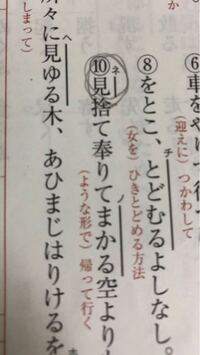 ⑥車をや
(迎えに)つかわして
チ
⑧をとこ、とどむるよしなし。
(女を)ひきとどめる方法
ネ
⑩見捨て奉りてまかる空より
ノ
(ような形で)帰って行く
ヘ
々に見ゆる木、あひまじはりけるを
しまって)